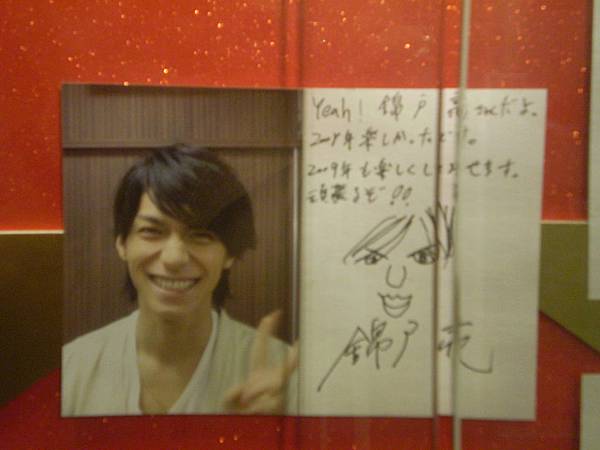 Yeah! 錦戸 亮さんだよ。
2008年楽しかったです。
2009年も楽しくしてみせます。
頑張るぞ!!
錦戸 亮